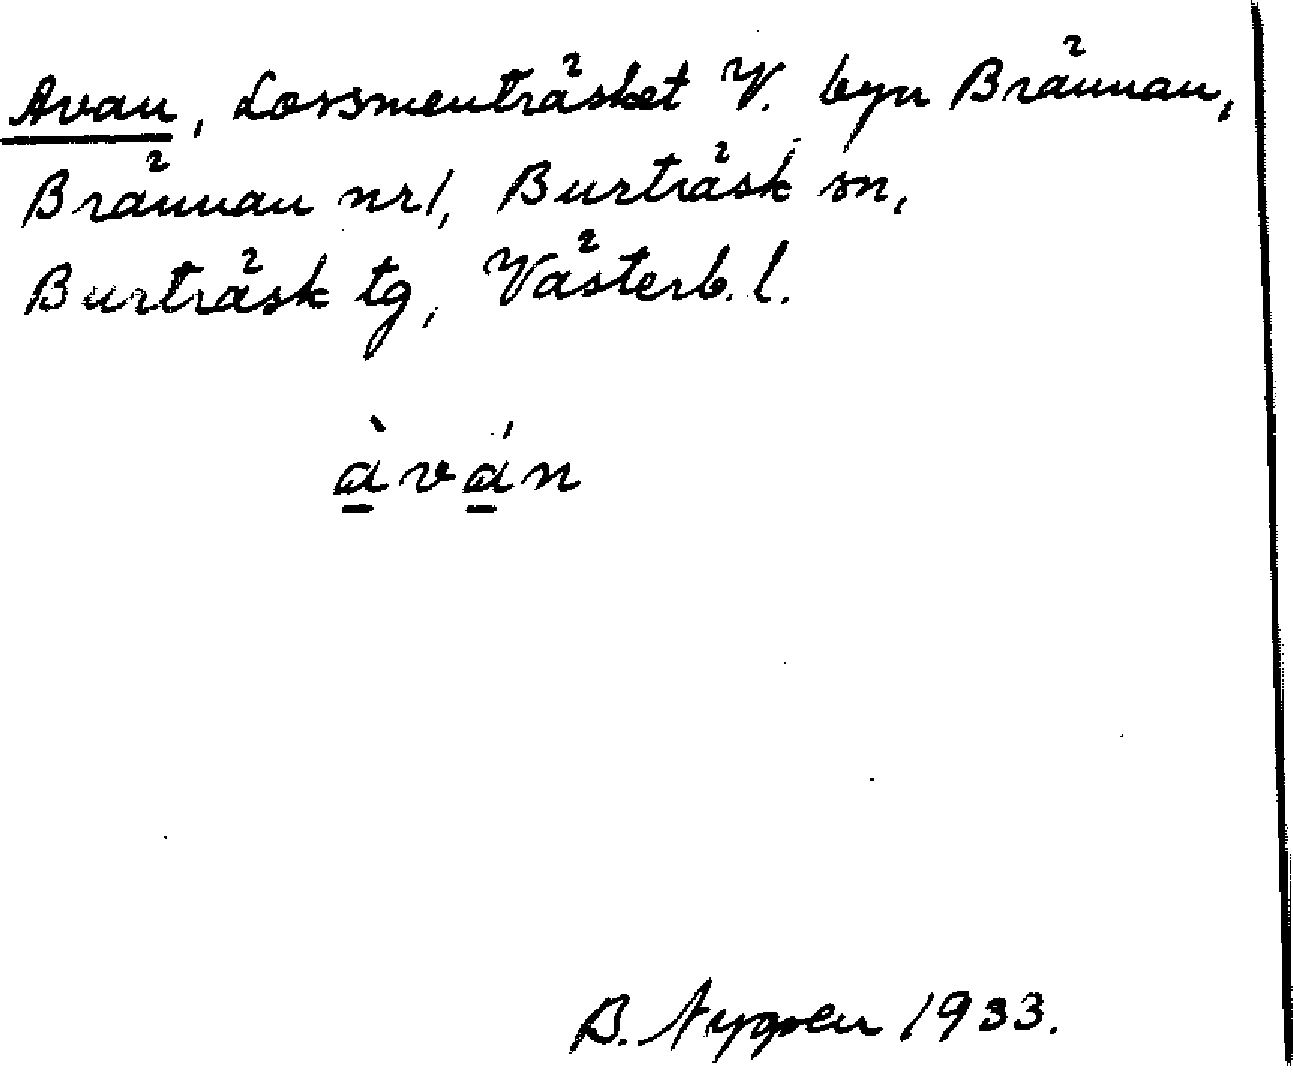 Avan, Lossmenträsket V. byn Brännan,
Brännan nr 1, Burträsk sn,
Burträsk tg, Västerb. l.
àván
B. Nygren 1933.